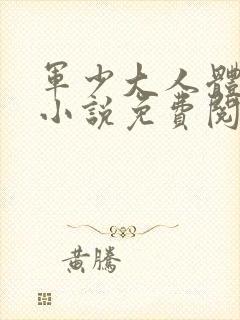 軍少大人體
小說免費閱
黃騰